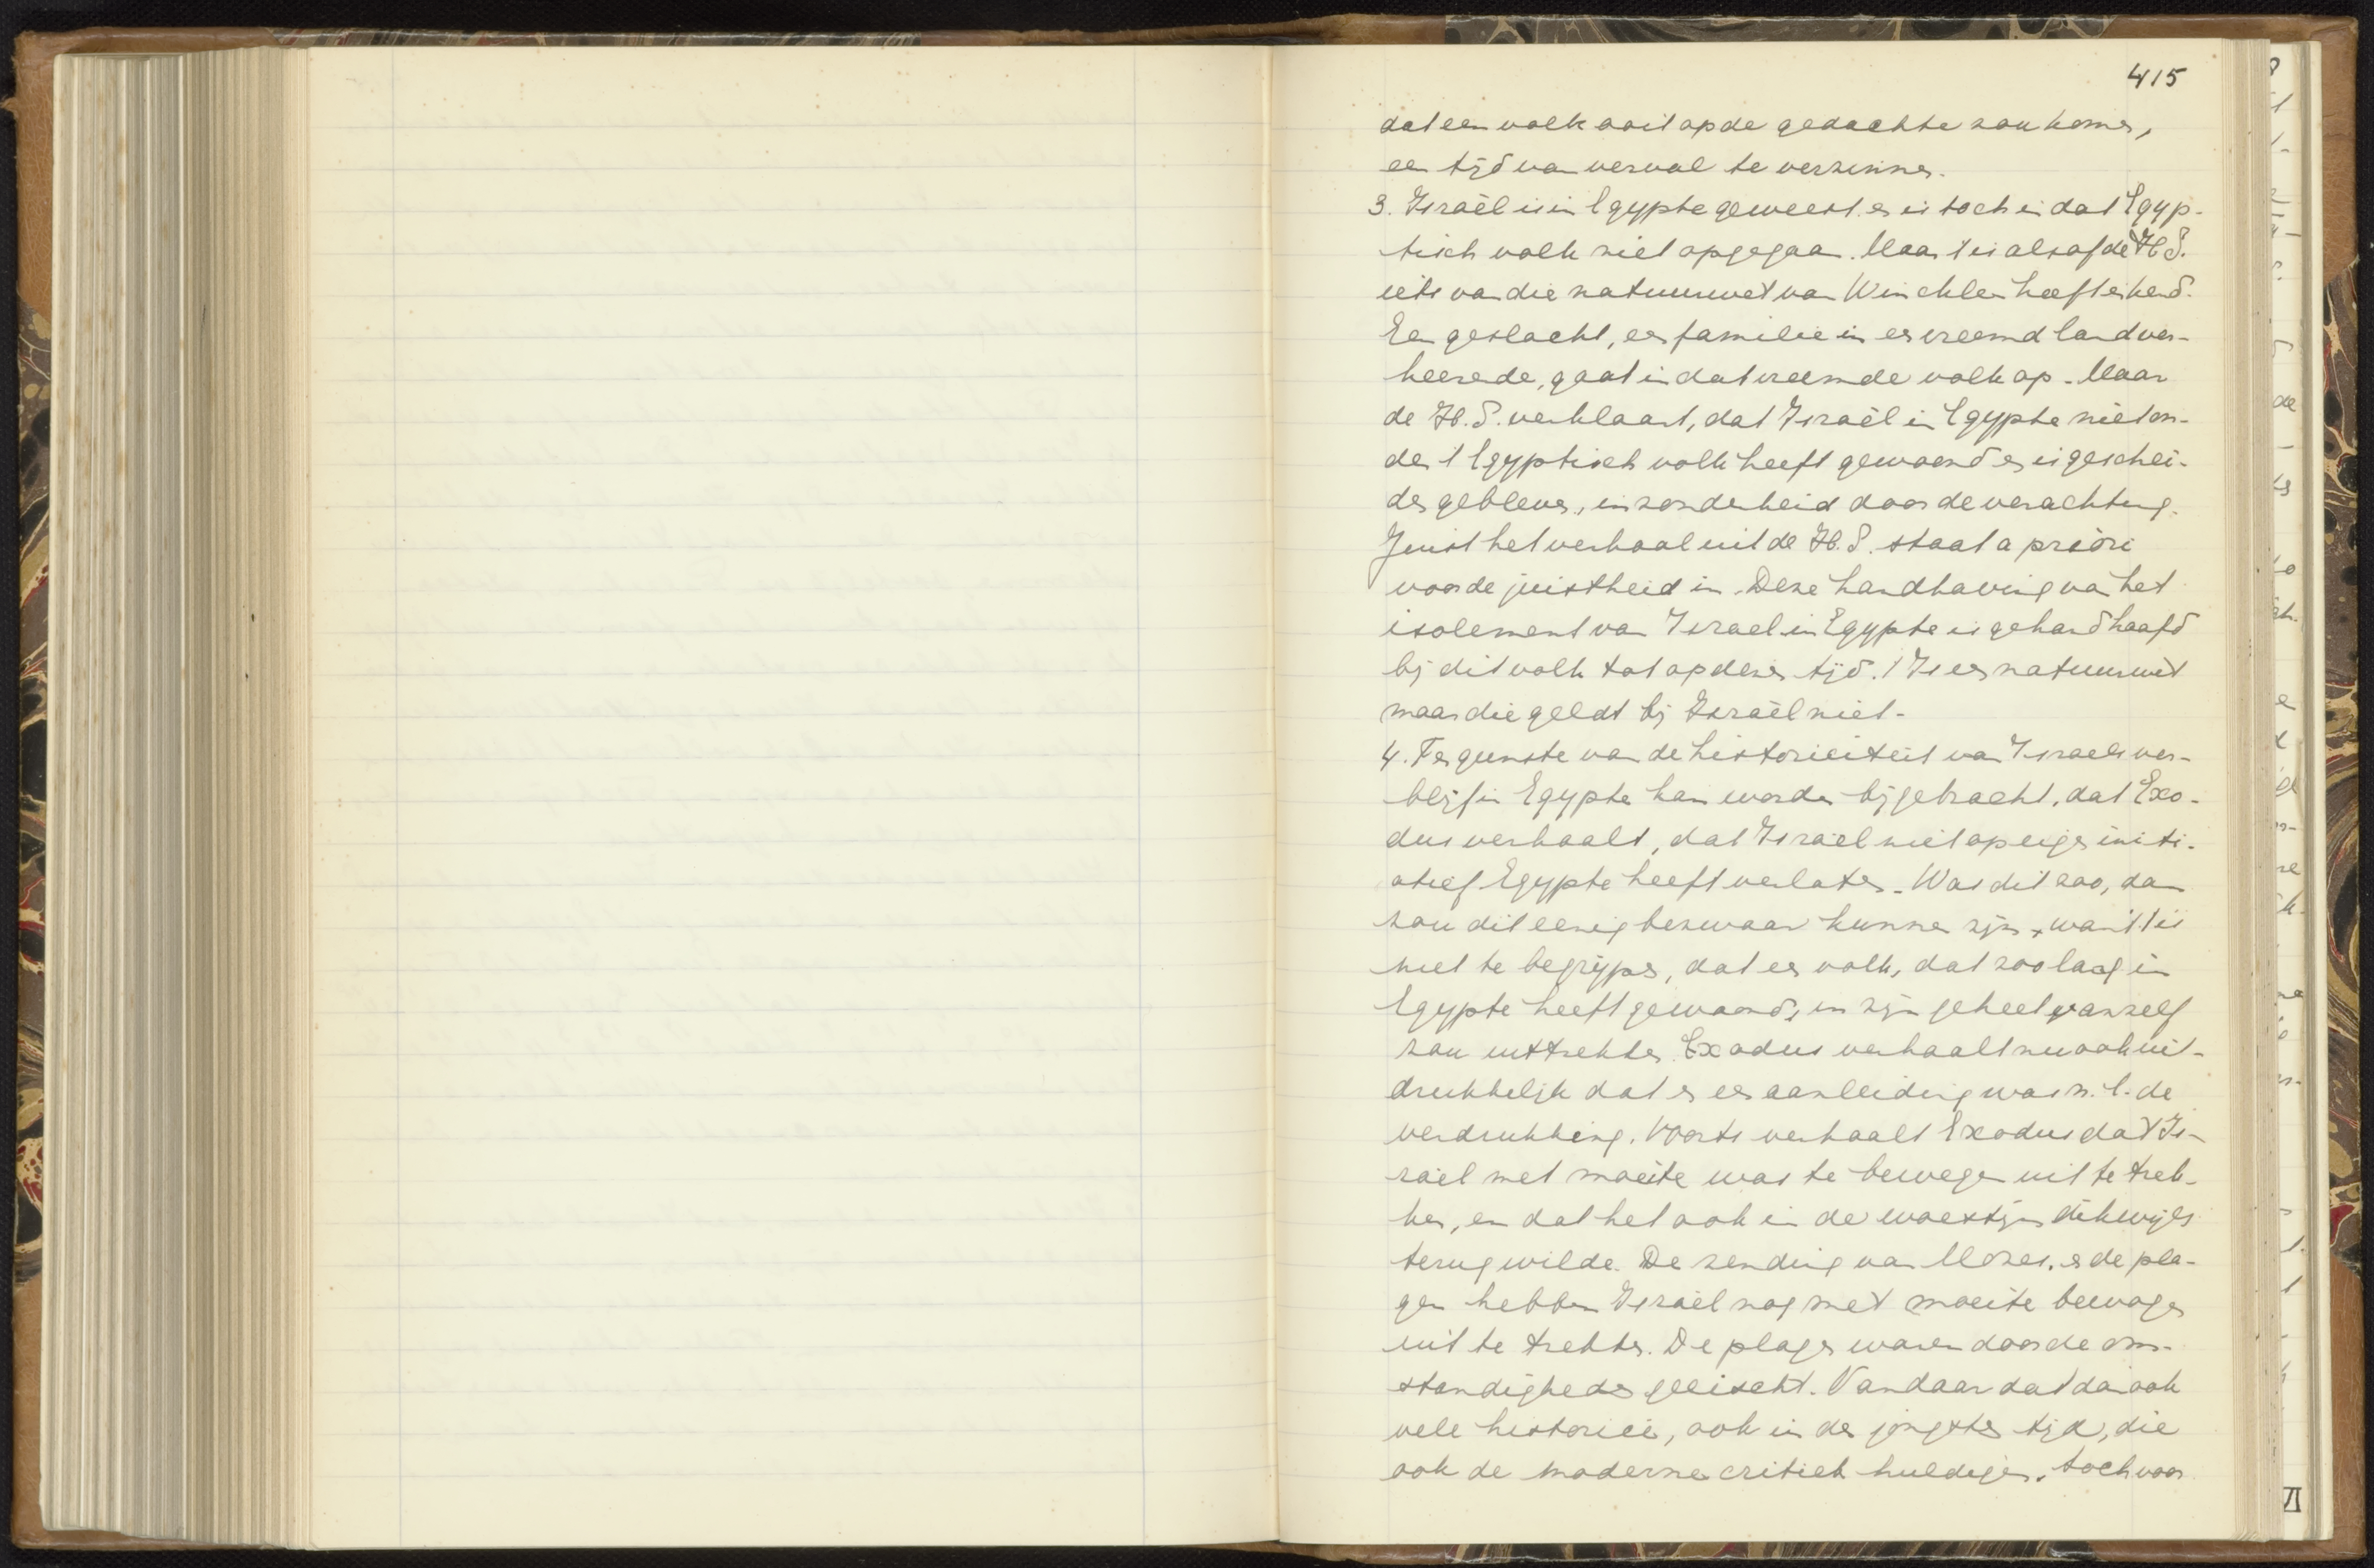 415
dat een volk ooit op de gedachte zou komen,
een tijd van verval te verzinnen.
3. Israël is in Egypte geweest en is toch in dat Egyp-
tisch volk niet opgegaan. Maar 't is alsof de H.S.
iets van die natuurwet van Winckler heeft erkend.
Een geslacht, een familie in een vreemd land ver-
keerende, gaat in dat vreemde volk op. Maar
de H.S. verklaart, dat Israël in Egypte niet on-
der 't Egyptisch volk heeft gewoond en is geschei-
den gebleven, inzonderheid door de verachting.
Juist het verhaal uit de H.S. staat a priori
voor de juistheid in. Deze handhaving van het
isolement van Israel in Egypte is gehandhaafd
bij dit volk tot op dezen tijd. 't Is een natuurwet
maar die geldt bij Israël niet.
4. Ten gunste van de historiciteit van Israels ver-
blijf in Egypte kan worden bijgebracht, dat Exo-
dus verhaalt, dat Israël niet op eigen initi-
atief Egypte heeft verlaten. Was dit zoo, dan
zou dit eenig bezwaar kunnen zijn, want 't is
niet te begrijpen, dat een volk, dat zoo lang in
Egypte heeft gewoond, in zijn geheel vanzelf
zou uittrekken. Exodus verhaalt nu ook uit-
drukkelijk dat er een aanleiding was n.l. de
verdrukking. Voorts verhaalt Exodus dat Is-
raël met moeite was te bewegen uit te trek-
ken, en dat het ook in de woestijn dikwijls
terug wilde. De zending van Mozes, en de pla-
gen hebben Israël nog met moeite bewogen
uit te trekken. De plagen waren door de om-
standigheden geëischt. Vandaar dat dan ook
vele historici, ook in den jongsten tijd, die
ook de moderne critiek huldigen, toch voor
VI